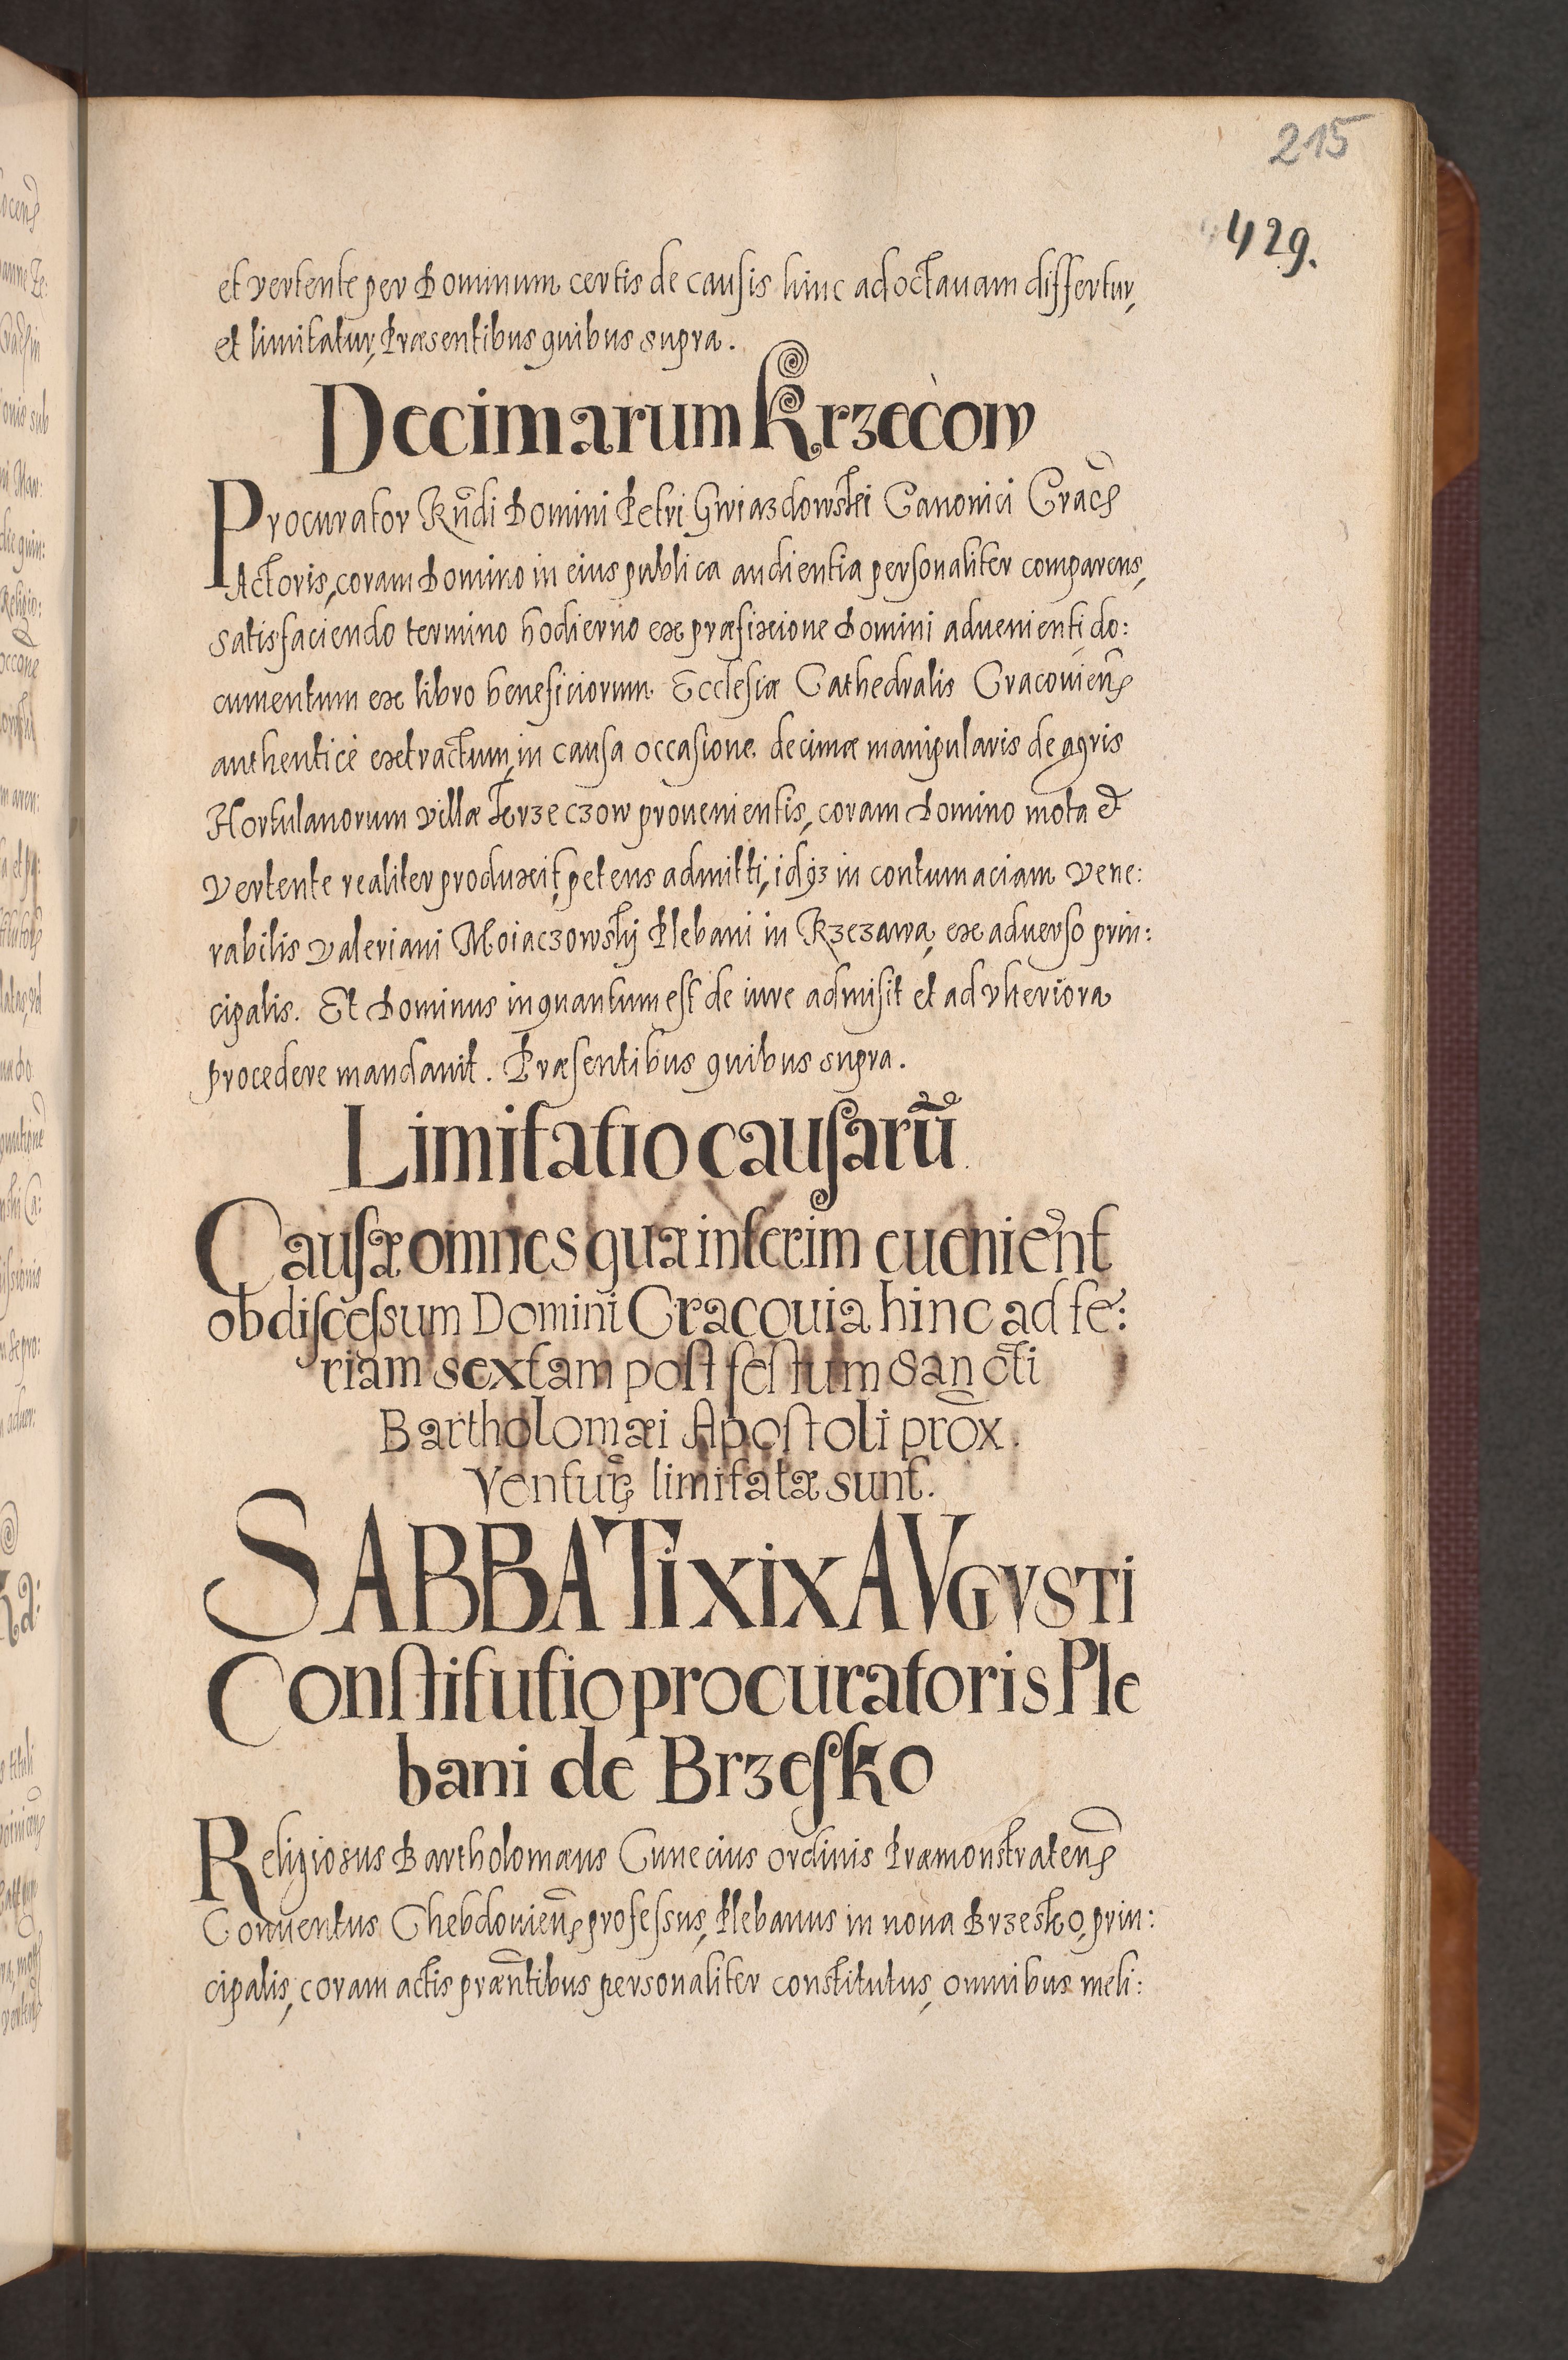 215
429.
et vertente per Dominum certis de causis hinc ad octavam differtur,
et limitatur, Præsentibus quibus supra.
Decimarum Krzecow
Procurator Rndi Domini Petri Gwiazdowski Canonici Crac
Actoris, coram Domino in eius publica audientia personaliter comparens,
satisfaciendo termino hodierno ex præfixione Domini advenienti, do:
cumentum ex libro beneficiorum Ecclesiæ Cathedralis Cracovien
authenticè extractum, in causa occasione decimæ manipularis de agris
Hortulanorum villæ Krzeczow provenientis, coram Domino mota et
Vertente realiter produxit, petens admitti, idqз in contumaciam Vene:
rabilis Valeriani Moiaczowskij Plebani in Rzezawa, ex adverso prin:
cipalis. Et Dominus in quantum est de iure admisit et ad vlteriora
procedere mandauit. Præsentibus quibus supra.
Limitatio causarū
Causæ omnes quæ interim euenient
ob discessum Domini Cracouia hinc ad fe:
riam sextam post festum Sancti
Bartholomæi Apostoli prox.
Ventur limitatæ sunt.
SABBATI XIX AVGVSTI
Constitutio procuratoris Ple
bani de Brzesko
Religiosus Bartholomæus Cunecius ordinis Præmonstraten
Conuentus Chebdouien professus, Plebanus in noua Brzesko, prin:
cipalis, coram actis præntibus personaliter constitutus, omnibus meli: